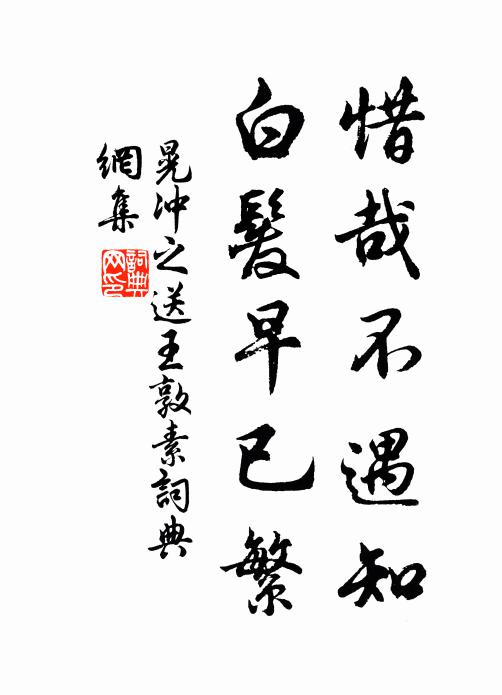 惜哉不遇知
白髮早已繁
晃冲之送王敦素詞典
網集
詞典
网印